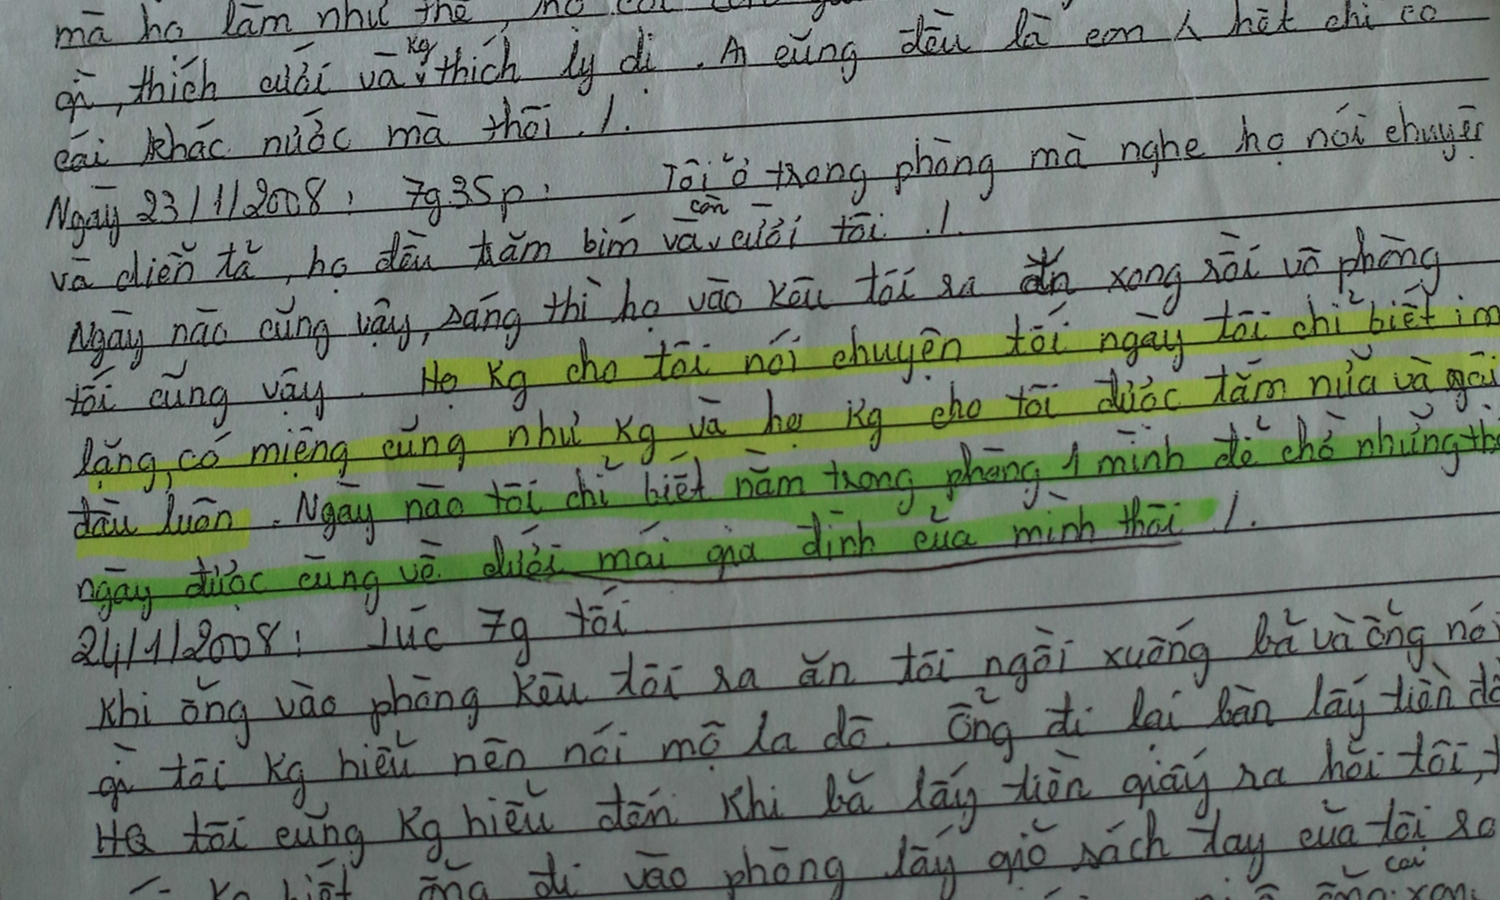 mà họ làm như thế, họ
gì, thích cưới và kg thích ly dị. A cũng đều là con người hết chỉ có
cái khác nước mà thôi ./.
Ngày 23/1/2008: 7g35p: Tôi ở trong phòng mà nghe họ nói chuyện
và diễn tả, họ đều trăm bím và còn cười tôi ./.
Ngày nào cũng vậy, sáng thì họ vào kêu tôi ra ăn xong rồi vô phòng
tối cũng vậy. Họ kg cho tôi nói chuyện tối ngày tôi chỉ biết im
lặng, có miệng cũng như kg và họ kg cho tôi được tắm nữa và gội
đầu luôn. Ngày nào tôi chỉ biết nằm trong phòng 1 mình để chờ những
ngày được cùng về dưới mái gia đình của mình thôi ./.
24/1/2008: lúc 7g tối
khi ổng vào phòng kêu tôi ra ăn tôi ngồi xuống bả và ổng nói
gì tôi kg hiểu nên nói mộ la đô. Ổng đi lại bàn lấy tiền đô
HQ tôi cũng kg hiểu đến khi bả lấy tiền giấy ra hỏi tôi,
kg biết ổng đi vào phòng lấy giỏ sách tay của tôi ra
cái